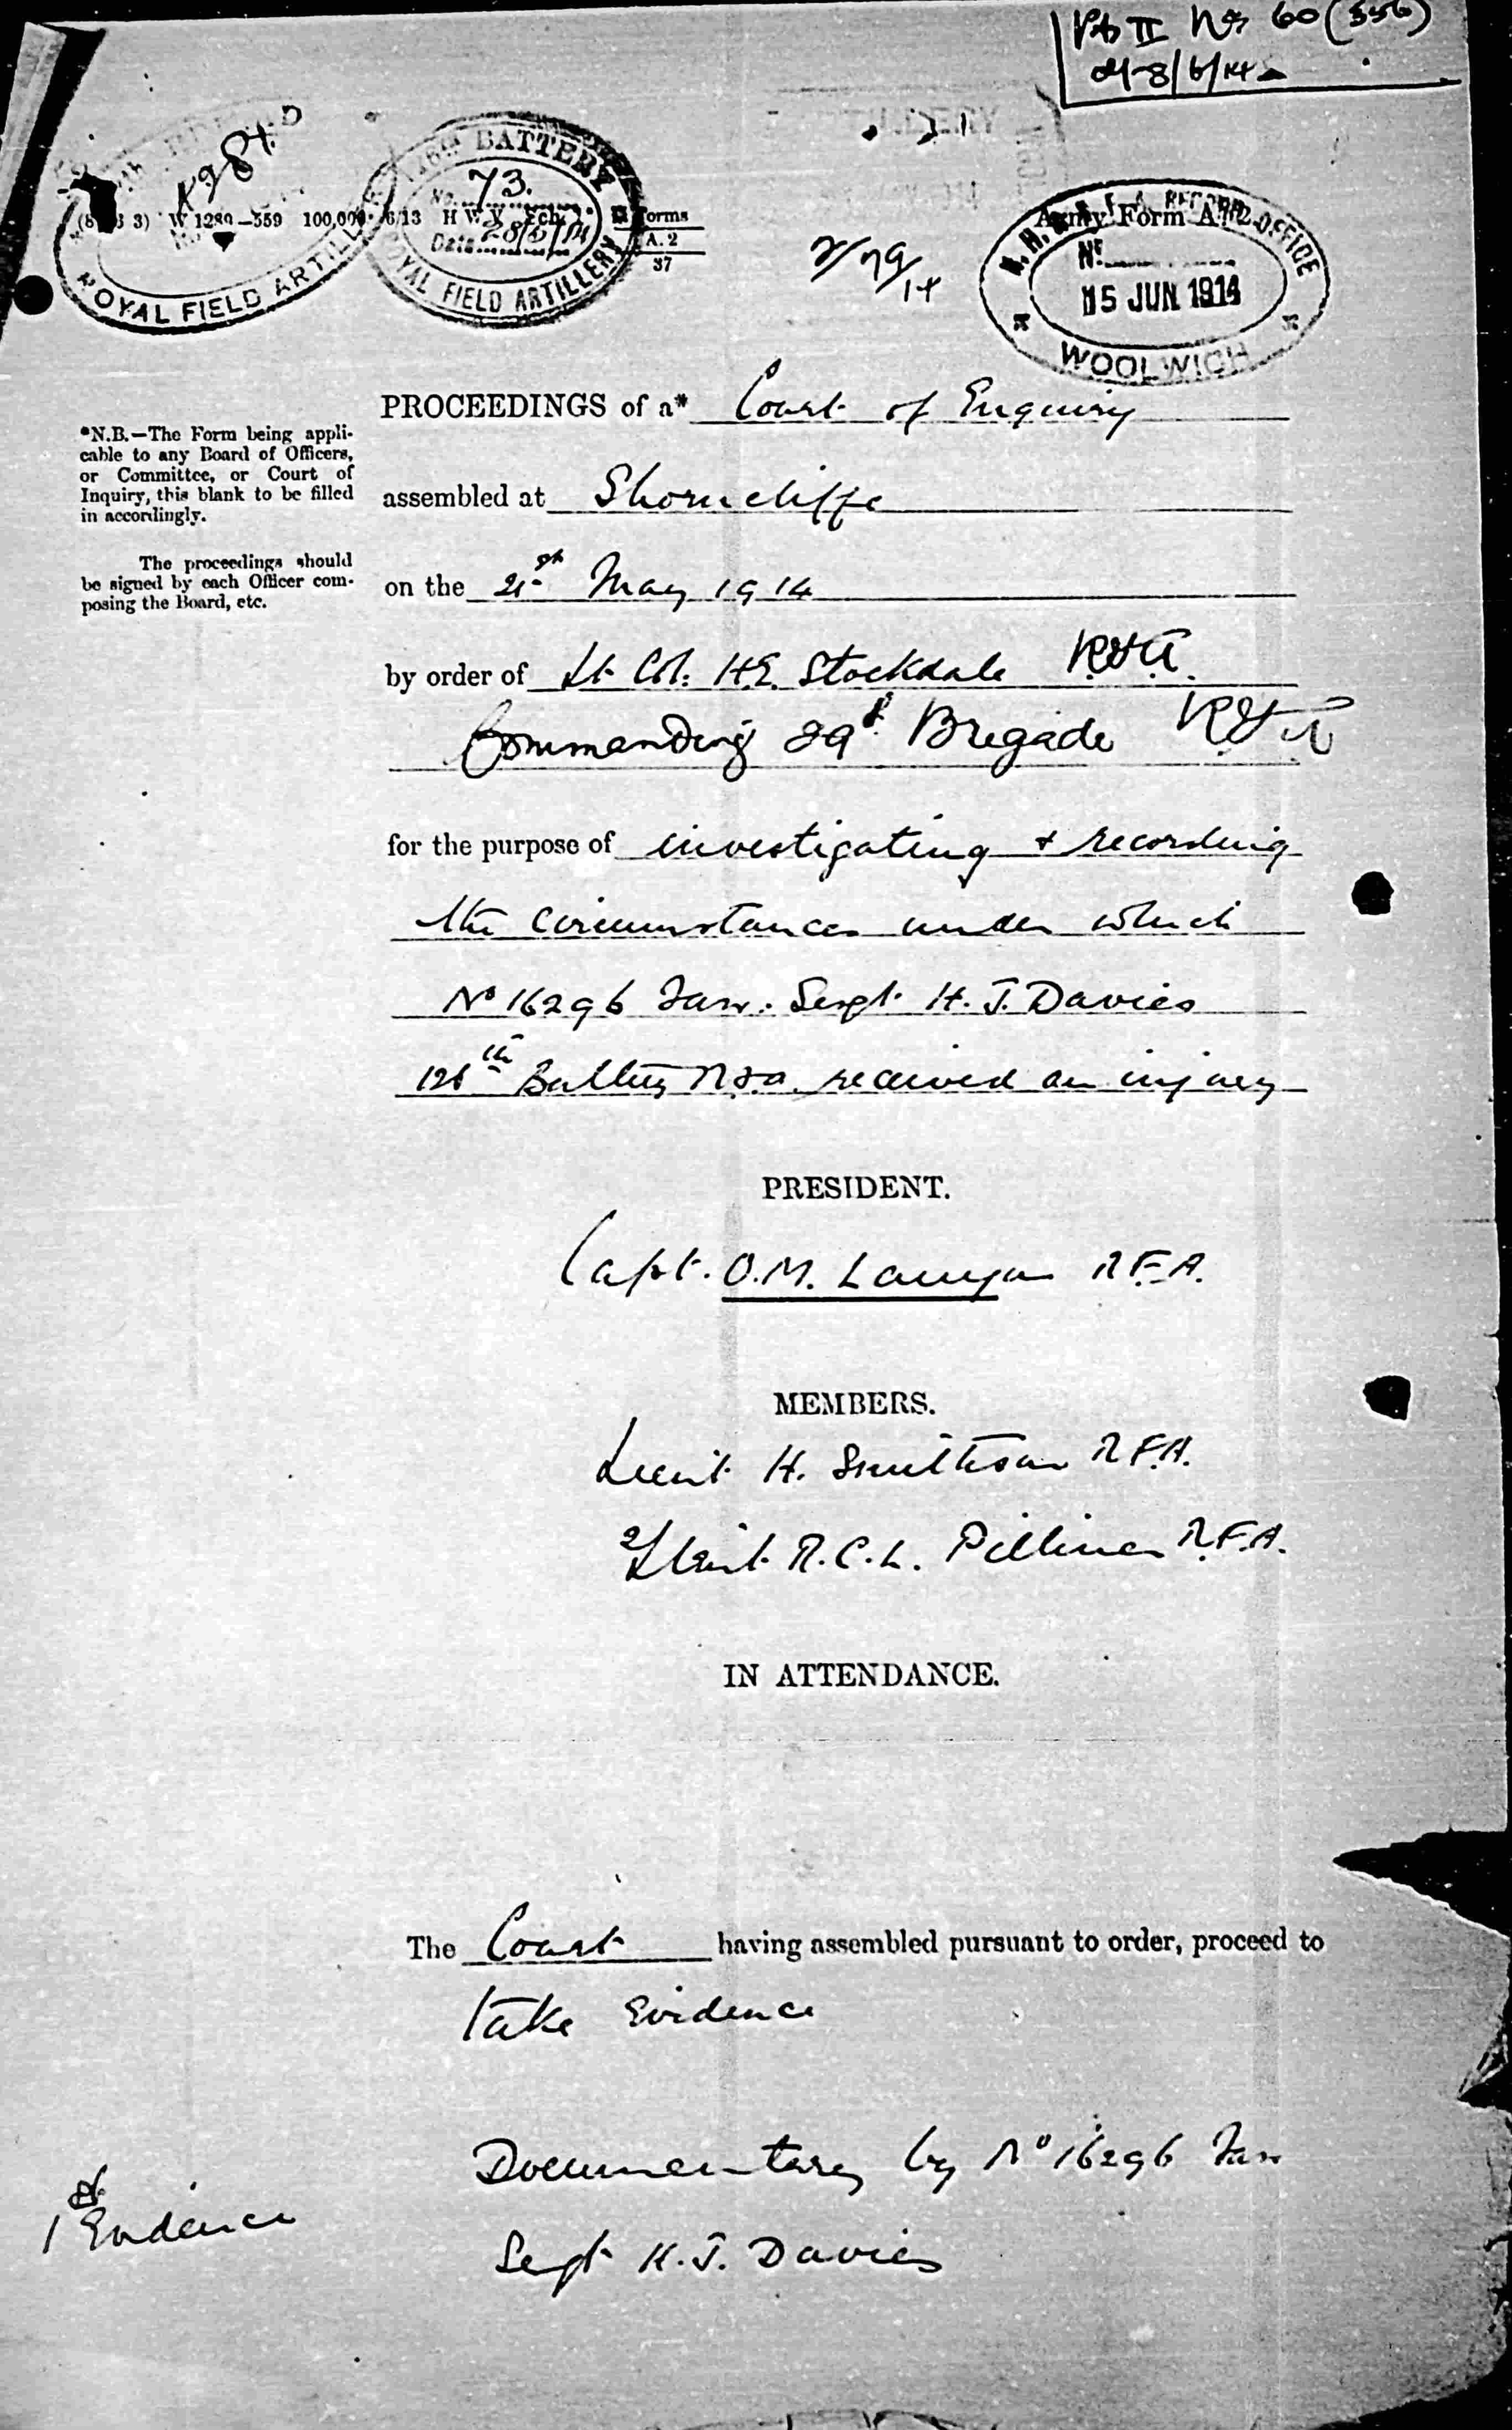 Pt II No 60 (556)
8/6/14
BATTERY
No. 73.
Date 28/5/14
ROYAL FIELD ARTILLERY
ROYAL FIELD ARTILLERY
W 1289—559 100,000 6/13 H W V
Forms
A. 2
37
2/79/14
Army Form A. 2.
RECORD OFFICE
No.
15 JUN 1914
WOOLWICH
PROCEEDINGS of a* Court of Enquiry
*N.B.—The Form being appli-
cable to any Board of Officers,
or Committee, or Court of
Inquiry, this blank to be filled
in accordingly.
The proceedings should
be signed by each Officer com-
posing the Board, etc.
assembled at Shorncliffe
on the 21st May 1914
by order of Lt Col: H.E. Stockdale R.F.A.
Commanding 29th Brigade R.F.A
for the purpose of investigating + recording
the circumstances under which
No 16296 Farr. Sergt. H. J. Davies
126th Battery R.F.A. received an injury
PRESIDENT.
Capt. O.M. Lanyon R.F.A.
MEMBERS.
Lieut H. Smithson R.F.A.
2/Lieut. R.C.L. Pilliner R.F.A.
IN ATTENDANCE.
The Court having assembled pursuant to order, proceed to
take Evidence
1st Evidence
Documentary by No 16296 Farr
Sergt H.J. Davies